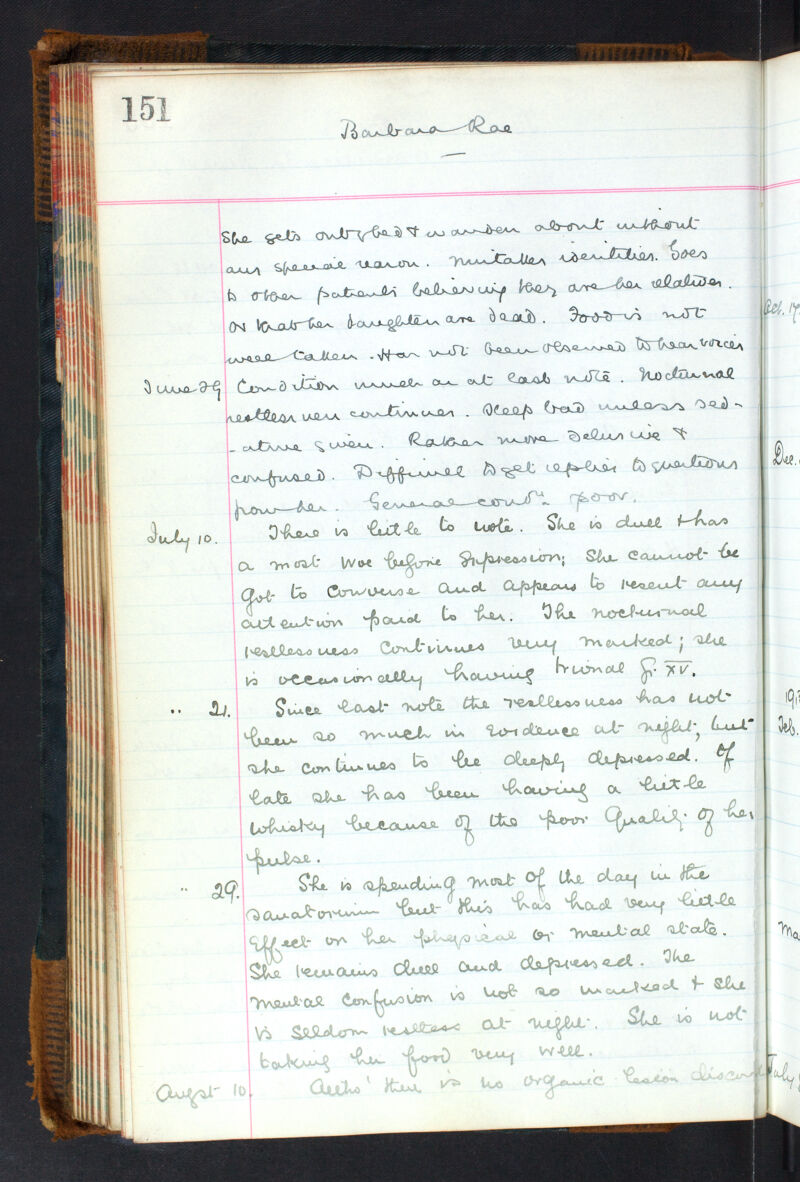 151
Barbara Rae
She gets out of bed & wanders about without
any special reason. Mistakes identities. Goes
to other patients believing they are her relatives.
or that her daughters are dead. Food is not
well taken. Has not been observed to hear voices
June 29 Condition much as at last note. Nocturnal
restlessness continues. Sleep bad unless sed-
-ative given. Rather more delusive &
confused. Difficult to get replies to questions
from her. General condn. poor.
July 10. There is little to note. She is dull & has
a most woe begone expression; she cannot be
got to converse and appears to resent any
attention paid to her. The nocturnal
restlessness continues very marked; she
is occasionally having trional gr. XV.
" 21. Since last note the restlessness has not
been so much in evidence at night, but
she continues to be deeply depressed. Of
late she has been having a little
whisky because of the poor quality of her
pulse.
" 29. She is spending most of the day in the
sanatorium but this has had very little
effect on her physical or mental state.
She remains dull and depressed. The
mental confusion is not so marked & she
is seldom restless at night. She is not
taking her food very well.
Augst 10. Altho' there is no organic lesion
Oct. 17
Dec.
191
Feb.
Ma
July